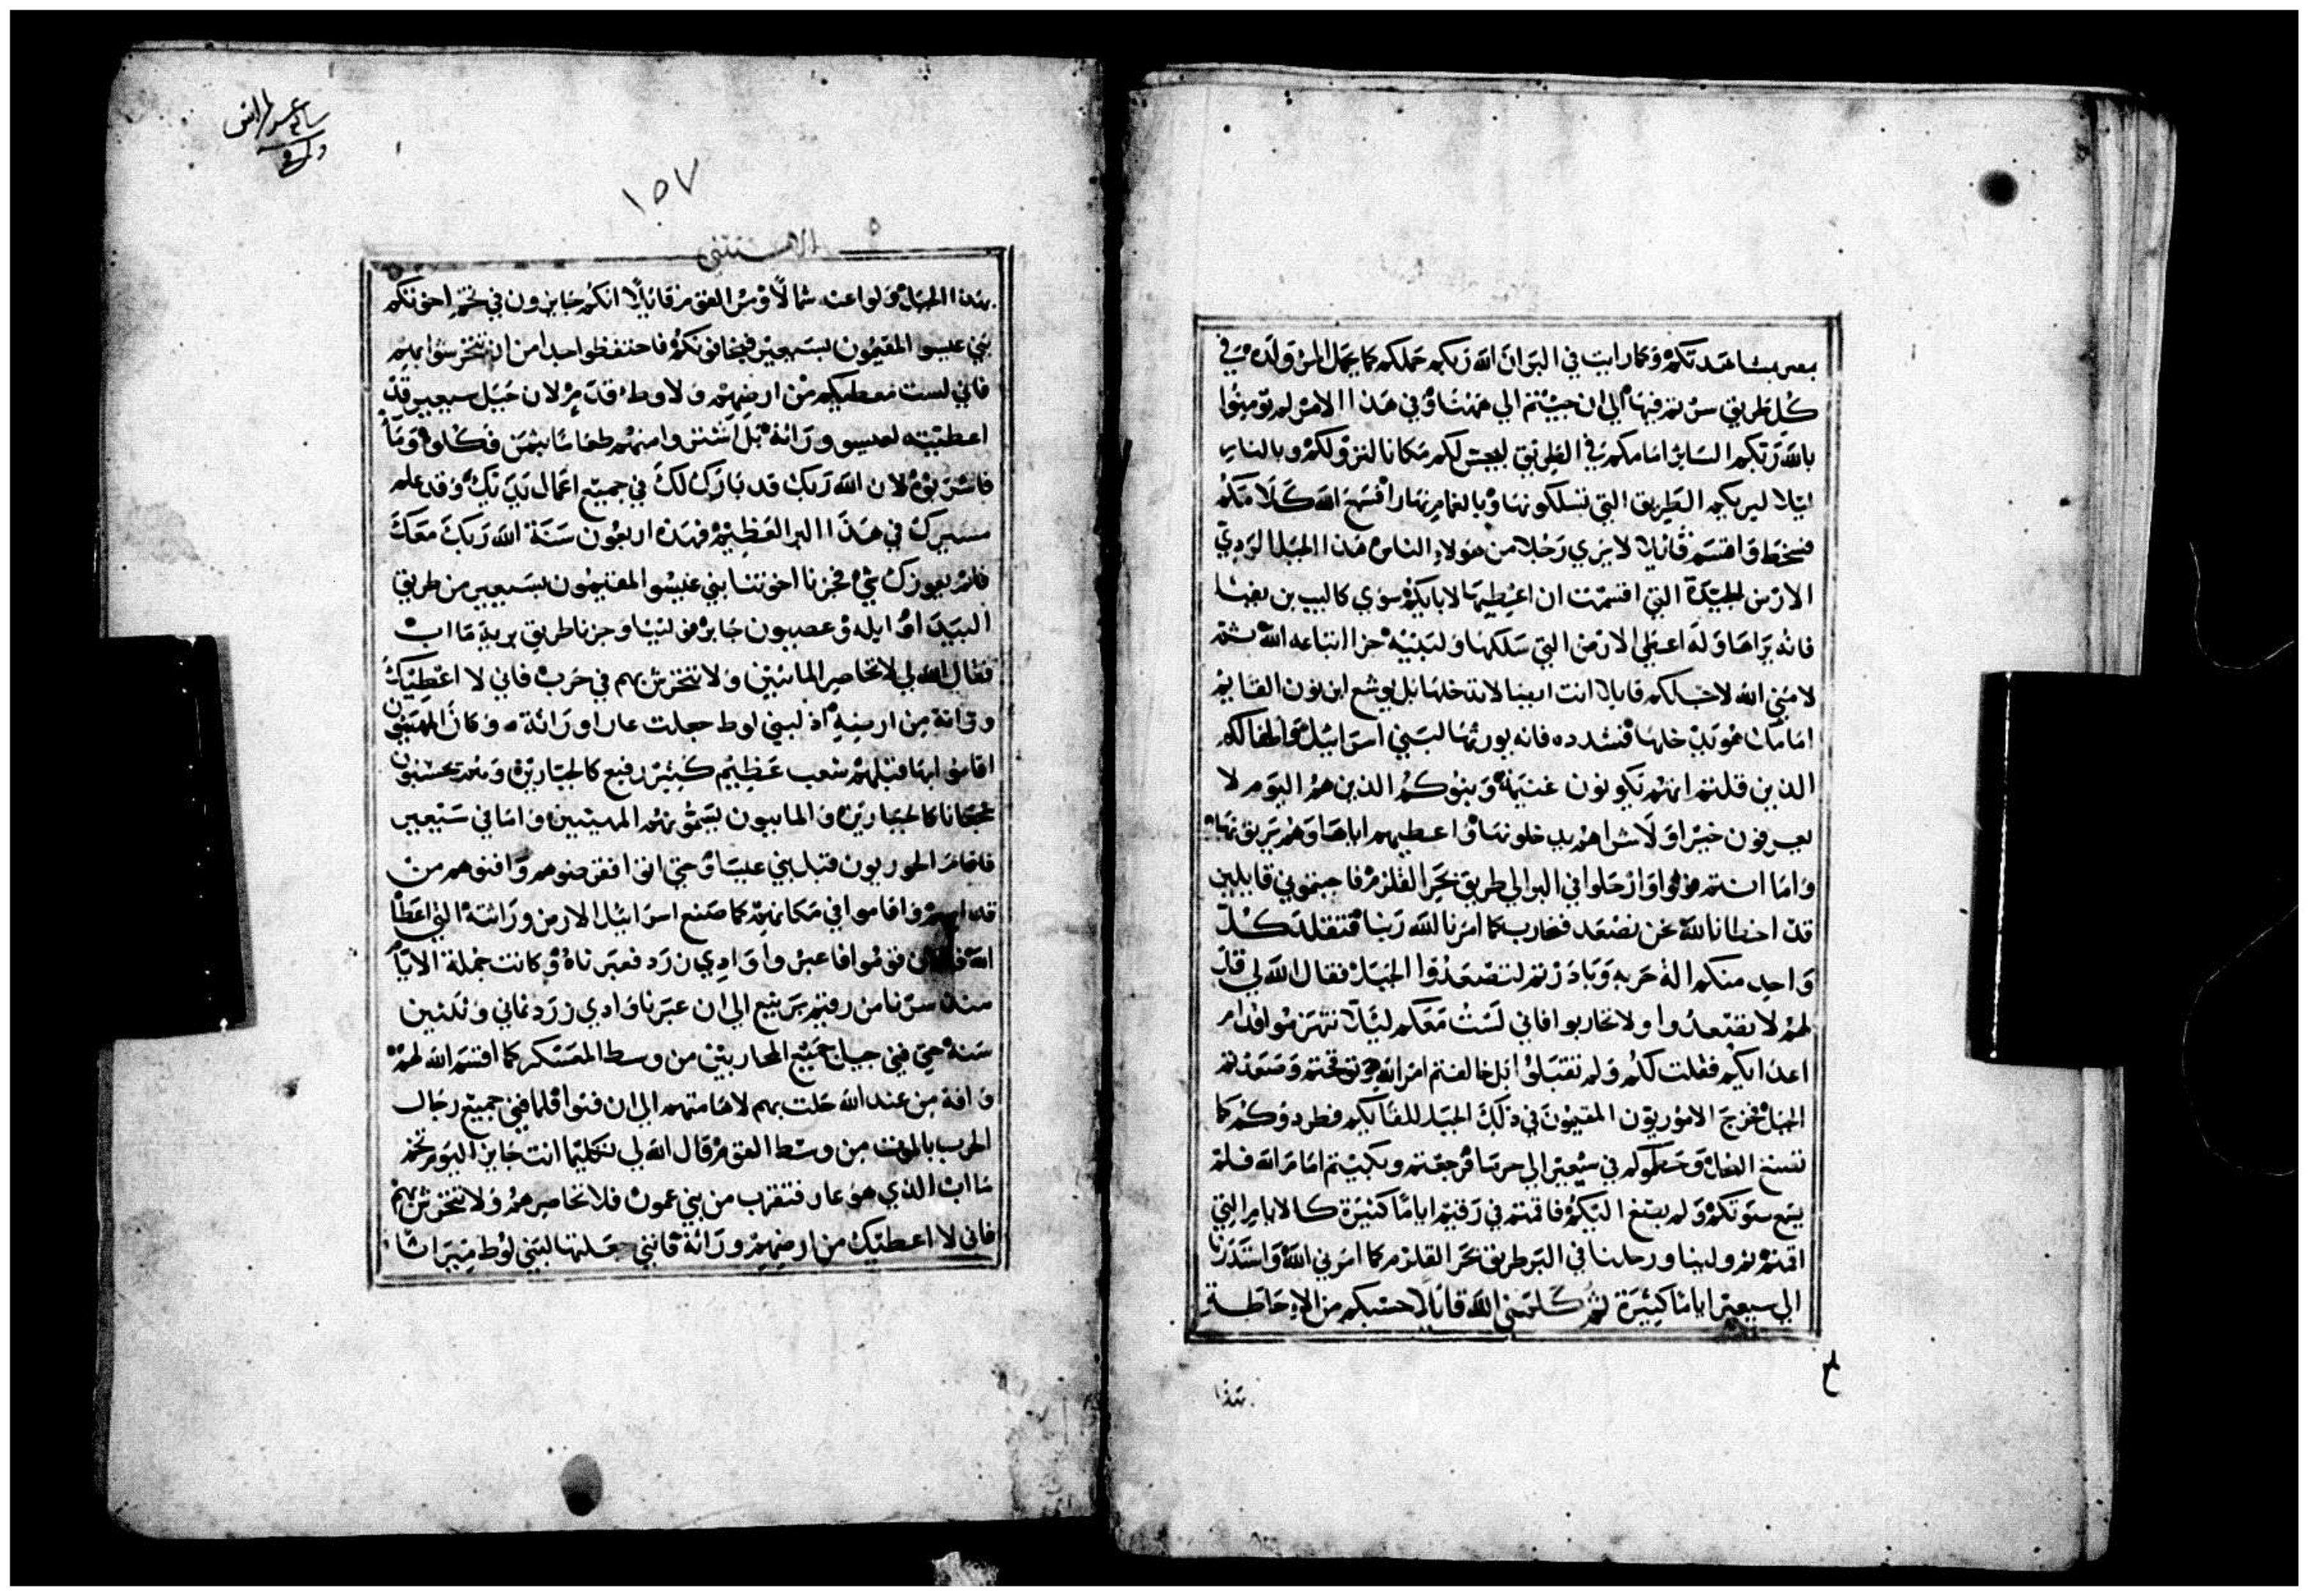 بمصر بمشاهدتكم وكما رايت في البر ان الله ربكم حملكم كما يحمل المرء ولده في
كل طريق سرتم فيها الي ان جيتم الي ههنا وفي هذا الامر لم تومنوا
بالله ربكم الساير امامكم في الطريق ليجس لكم مكانا لنزولكم وبالنار
ليلا ليريكم الطريق التي تسلكونها وبالغمام نهارا فسمع الله كلامكم
فسخط واقسم قايلا لا يري رجلا من هولاء الناس هذا الجيل الردي
الارض الجيدة التي اقسمت ان اعطيها لابايكم سوي كالب بن يفنا
فانه يراها وله اعطي الارض التي سلكها ولبنيه جزا اتباعه الله ثم
لامني الله لاجلكم قايلا انت ايضا لا تدخلها بل يوشع ابن نون القايم
امامك هو يدخلها فشدده فانه يورثها لبني اسراييل واطفالكم
الذين قلتم انهم يكونون غنيمة وبنوكم الذين هم اليوم لا
يعرفون خيرا ولا شرا هم يدخلونها واعطيهم اياها وهم يرثونها
واما انتم فولوا وارحلوا في البر الي طريق بحر القلزم فاجبتموني قايلين
قد اخطانا لله نحن نصعد فنحارب كما امرنا الله ربنا فتقلد كل
واحد منكم الة حربه وبادرتم لتصعدوا الجبل فقال الله لي قل
لهم لا تصعدوا ولا تحاربوا فاني لست معكم ليلا تنهزموا قدام
اعدايكم فقلت لكم ولم تقبلوا بل خالفتم امر الله وتوقحتم وصعدتم
الجبل فخرج الاموريون المقيمون في ذلك الجبل للقايكم فطردوكم كما
تصنع النحل وحطموكم في سيعير الي حرما فرجعتم وبكيتم امام الله فلم
يسمع صوتكم ولم يصغ اليكم فاقمتم في رقيم اياما كثيرة كالايام التي
اقمتم ثم ولينا ورحلنا في البر طريق بحر القلزم كما امرني الله واستدرنا
الي سيعير اياما كثيرة ثم كلمني الله قايلا حسبكم من الاحاطة
بهذا
١٥٧
الاستثني
بهذا الجبل ولوا عنه شمالا ومر القوم قايلا انكم جايزون في تخم اخوتكم
بني عيسو المقيمون بسيعير فيخافونكم فاحتفظوا جدا من ان تتحرشوا بهم
فاني لست معطيكم من ارضهم ولا وطء قدم لان جبل سيعير قد
اعطيته لعيسو وراثة بل اشتروا منهم طعاما بثمن فكلوه وماء
فاشربوه لان الله ربك قد بارك لك في جميع اعمال يديك وقد علم
مسيرك في هذا البر العظيم فهذه اربعون سنة الله ربك معك
فلم يعوزك شي فجزنا اخوتنا بني عيسو المقيمون بسيعير من طريق
البيدا وايله وعصيون جابر فولينا وجزنا طريق برية مااب
فقال الله لي لا تحاصر المابيين ولا تتحرش بهم في حرب فاني لا اعطيك
وراثة من ارضه اذ لبني لوط جعلت عار وراثة وكان المهيبون
اقاموا بها قبلهم شعب عظيم كثير رفيع كالجبارين وهم يحسبون
شجعانا كالجبارين والمابيون يسمونهم المهيبين واما في سيعير
فاقام الحوريون قبل بني عيسا وحتي انقرضوهم وافنوهم من
قدامهم واقاموا في مكانهم كما صنع اسراييل الارض وراثته التي اعطا
الله قوموا فاعبروا وادي زرد فعبرناه وكانت جملة الايام
منذ سرنا من رقيم برنيع الي ان عبرنا وادي زرد ثماني وثلثين
سنة حتي فني جيل جميع المحاربين من وسط المعسكر كما اقسم الله لهم
وافة من عند الله حلت بهم لاهامتهم الي ان فنوا فلما فني جميع رجال
الحرب بالموت من وسط القوم قال الله لي تكليما انت جايز اليوم تخم
مااب الذي هو عار فتقرب من بني عمون فلا تحاصرهم ولا تتحرش بهم
فاني لا اعطيك من ارضهم وراثة فانني جعلتها لبني لوط ميراثا